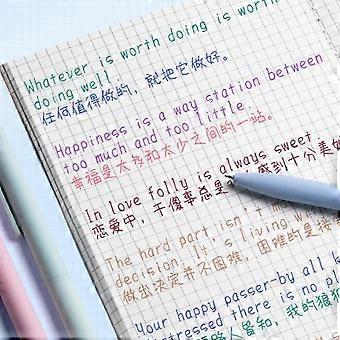 Whatever is worth doing is worth
doing well.
任何值得做的，就把它做好。
Happiness is a way station between
too much and too little.
幸福是太多和太少之间的一站。
In love folly is always sweet.
恋爱中，干傻事总是 感到十分美妙
The hard part isn't m
decision. It's living with
做出决定并不困难，困难的是接
Your happy passer-by all k
distressed there is no pl
路人皆知，我的狼狈